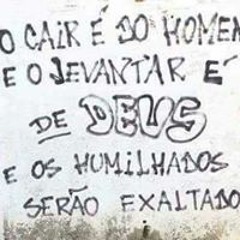 O CAIR É DO HOMEM
E O LEVANTAR É
DE DEUS
E OS HUMILHADOS
SERÃO EXALTADO